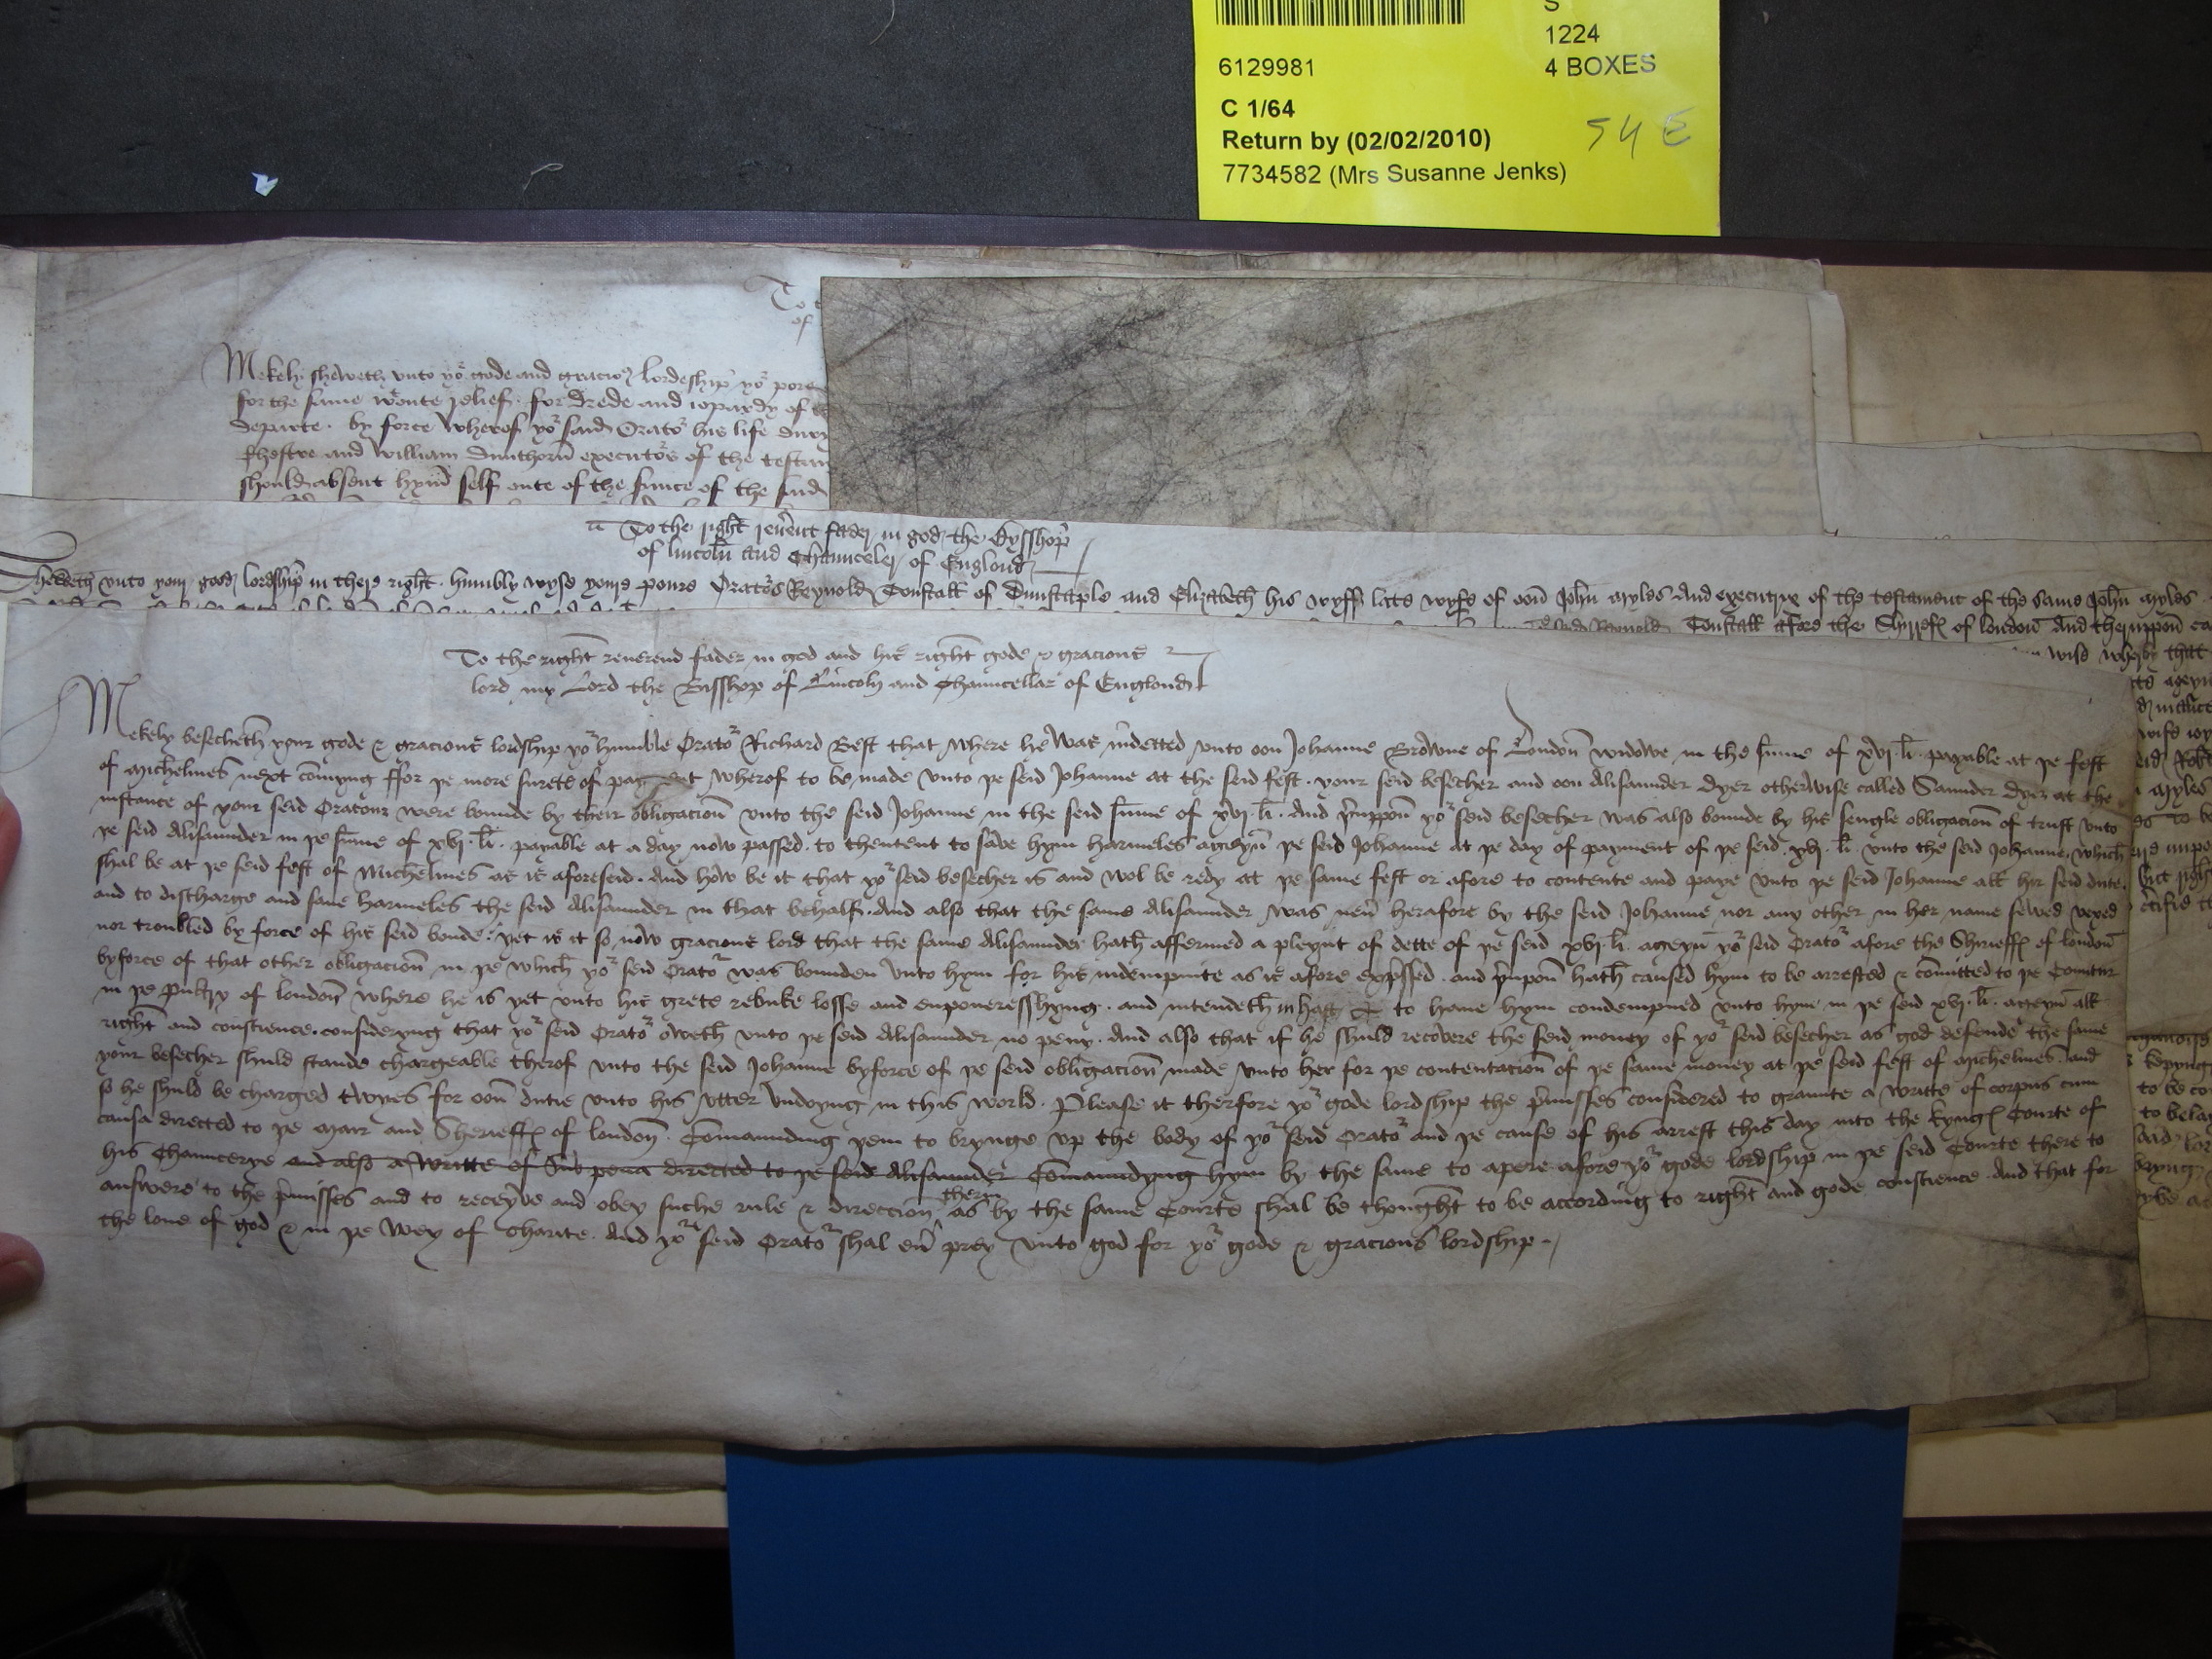 S
1224
6129981
4 BOXES
C 1/64
Return by (02/02/2010)
54 E
7734582 (Mrs Susanne Jenks)
To t
of
Mekely sheweth vnto yor gode and gracious lordeship yor pore
for the same wonte relief for drede and iopardy of
departe by force wherof yor said Orator his life
and William Dunthorn executors of the testam
should absent hym self oute of the  of the said
To the right reuerent fader in god the Bysshop
of lincoln and Chaunceler of Englond
Sheweth vnto your good lordship in there right humbly wyse youre poure Orators Reynold Tonstall of Dunstaple and Elizabeth his wyff late wyfe of oon John Myles And executrix of the testament of the same John Myles
Reynold Tonstall afore the Shyrefs of london And theruppon
wise wherby that
To the right reuerend fader in god and his right gode & gracious
lord my Lord the Bisshop of Lincoln and Chauncellar of Englond
Mekely besecheth your gode & gracious lordship yor humble Orator Richard Best that where he was indetted vnto oon Johanne Browne of London widowe in the summe of xvj li payable at þe fest
of Michelmes next comyng ffor þe more surete of payment wherof to be made vnto þe seid Johanne at the seid fest your seid besecher and oon Alisaunder Dyer otherwise called Saunder Dyer at the
instance of your seid Oratour were bounde by their obligacion vnto the seid Johanne in the seid summe of xvj li And þeruppon yor seid besecher was also bounde by his sengle obligacion of trust vnto
þe seid Alisaunder in þe summe of xvj li payable at a day now passed to thentent to save hym harmeles ageyn þe seid Johanne at þe day of payment of þe seid xvj li vnto the seid Johanne which
shal be at þe seid fest of Michelmes as is aforeseid And how be it that yor seid besecher is and wol be redy at þe same fest or afore to contente and paye vnto þe seid Johanne all her seid dute
and to discharge and save harmeles the seid Alisaunder in that behalf And also that the same Alisaunder was neuer herafore by the seid Johanne nor any other in her name sewed vexed
nor troubled by force of his seid bonde yet is it so now gracious lord that the same Alisaunder hath affermed a pleynt of dette of þe seid xvj li ageyn yor seid Orator afore the Shireffs of london
byforce of that other obligacion in þe which yor seid Orator was bounden vnto hym for his indempnite as is afore expressed and þeruppon hath caused hym to be arrested & committed to þe Countur
in þe Pultry of london where he is yet vnto his grete rebuke losse and enpoueresshyng and intendeth in hast to haue hym condempned vnto hym in þe seid xvj li ageyn all
right and conscience consideryng that yor seid Orator oweth vnto þe seid Alisaunder no peny And also that if he shuld recovere the seid money of yor seid besecher as god defende the same
your besecher shuld stande chargeable therof vnto the seid Johanne byforce of þe seid obligacion made vnto her for þe contentacion of þe same money at þe seid fest of Michelmes and
so he shuld be charged twyes for oon dutie vnto his vtter vndoyng in this world Please it therfore yor gode lordship the premisses considered to graunte a writte of corpus cum
causa directed to þe Mair and Shireffs of london Commaunding þem to brynge vp the body of yor seid Orator and þe cause of his arrest this day into the kyngs Courte of
his Chauncerye and also a writte of Sub pena directed to þe seid Alisaunder Commaundyng hym by the same to apere afore yor gode lordship in þe seid Courte there to
answere to the premisses and to receyve and obey suche rule & direccion as there by the same Courte shal be thought to be according to right and gode conscience And that for
the loue of god & in þe wey of charite And yor seid Orator shal euer prey vnto god for yor gode & gracious lordship